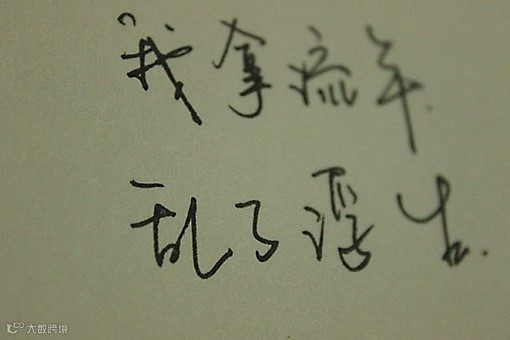 “我拿流年
乱了浮生.
大数跨境